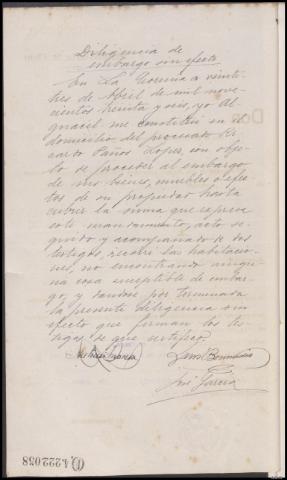 Diligencia de
embargo sin efecto
En La a veinti-
tres de Abril de mil nove-
cientos treinta y seis, yo Al-
guacil me constituí en el
domicilio del procesado Ri-
cardo Paños Lopez, con obje-
to de proceder al embargo
de sus bienes, muebles o efec-
tos de su propiedad hasta
cubrir la suma que expresa
este mandamiento, acto se-
guido y acompañado de dos
testigos, recorri las habitacio-
nes, no encontrando ningu-
na cosa susceptible de embar-
go, y dandose por terminada
la presente diligencia sin
efecto que firman los tes-
tigos, de que certifico.
García Luis
José García
4222058